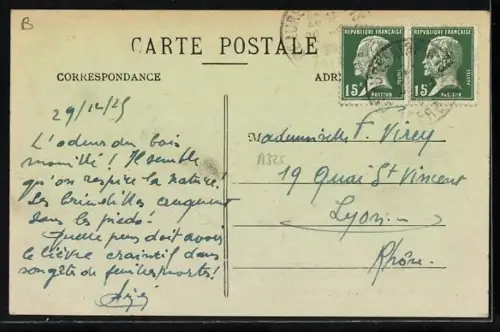 B
CARTE POSTALE
CORRESPONDANCE
ADR
RÉPUBLIQUE FRANÇAISE
15c
POSTES
PASTEUR
RÉPUBLIQUE FRANÇAISE
15c
POSTES
PASTEUR
29/12/25
L'odeur du bois
mouillé ! Il semble
qu'on respire la nature !
Les brindilles craquent
sous les pieds !
Quelle peur doit avoir
le lièvre craintif dans
son gîte de feuilles mortes !
Mademoiselle F. Virey
A325
19 Quai St Vincent
Lyon
Rhône.